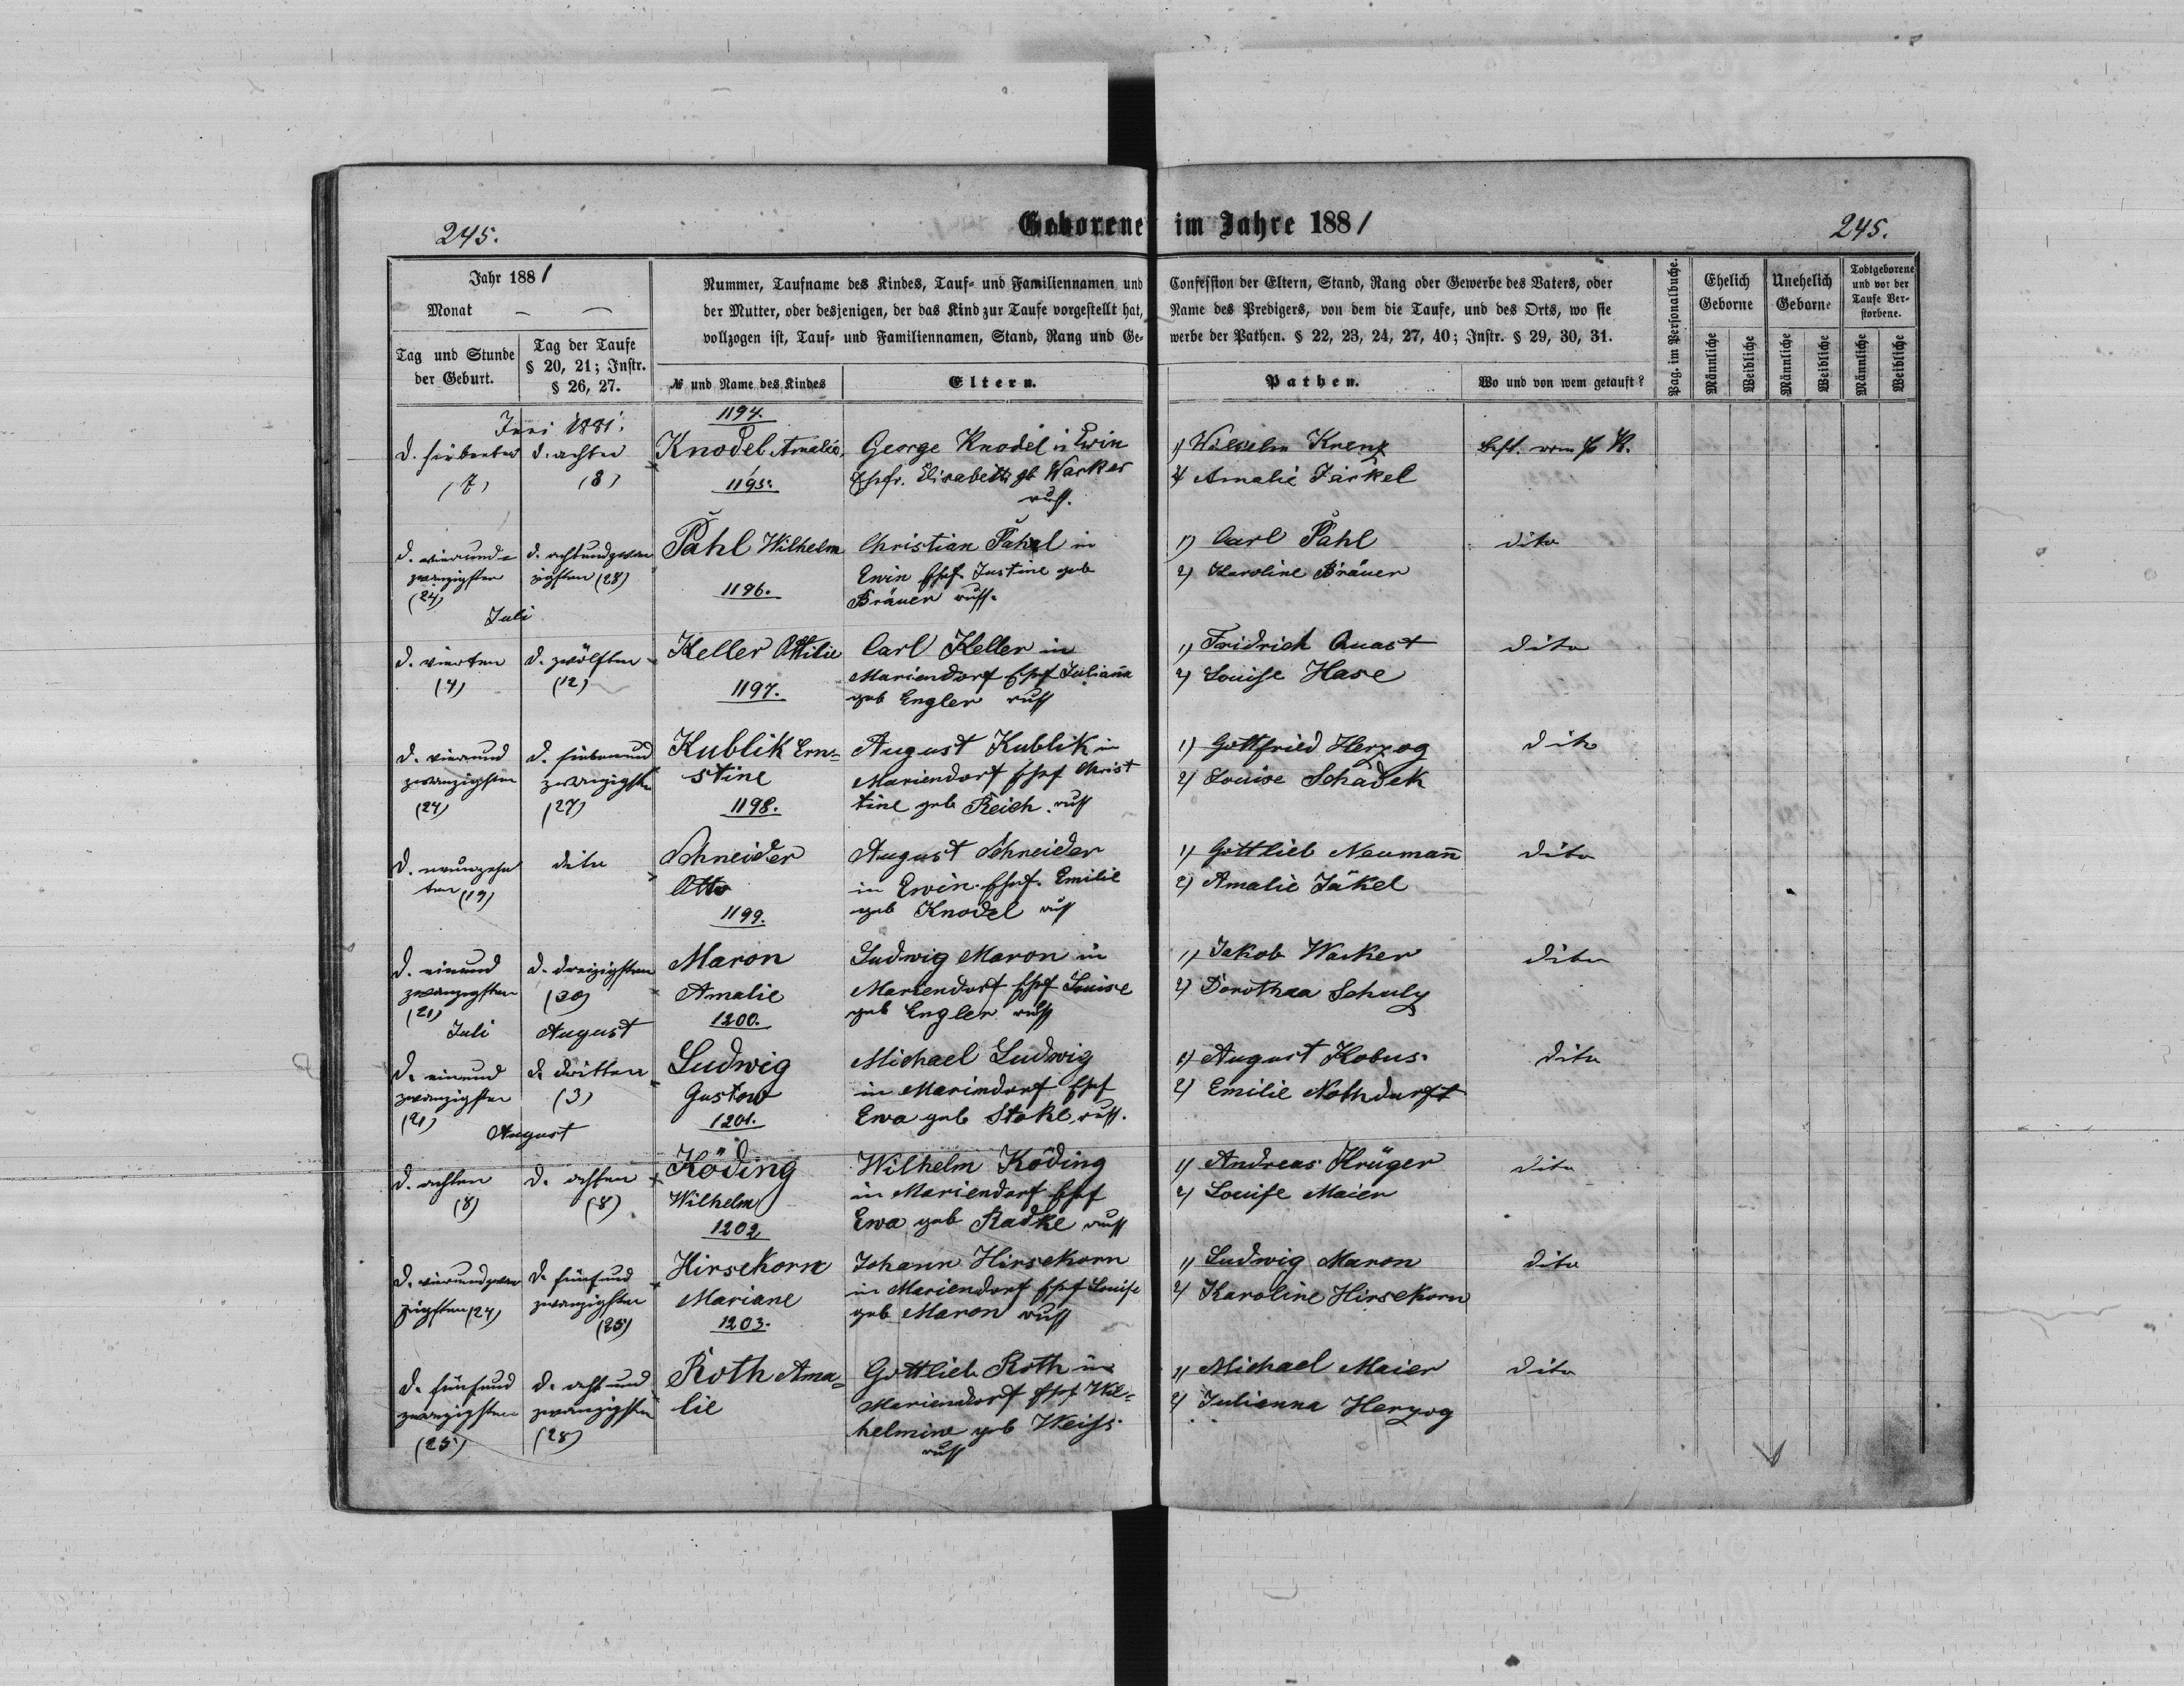 245.
Geborene im Jahre 1881
245.
Jahr 1881
Monat — —
Tag und Stunde der Geburt.
Tag der Taufe § 20, 21; Instr. § 26, 27.
Nummer, Taufname des Kindes, Tauf- und Familiennamen und Confession der Eltern, Stand, Rang oder Gewerbe des Vaters, oder
der Mutter, oder desjenigen, der das Kind zur Taufe vorgestellt hat, Name des Predigers, von dem die Taufe, und des Orts, wo sie
vollzogen ist, Tauf- und Familiennamen, Stand, Rang und Gewerbe der Pathen. § 22, 23, 24, 27, 40; Instr. § 29, 30, 31.
№ und Name des Kindes
Eltern.
Pathen.
Wo und von wem getauft?
Pag. im Personalbuche.
Ehelich Geborne
Unehelich Geborne
Todtgeborene und vor der Taufe Verstorbene.
Männliche
Weibliche
Männliche
Weibliche
Männliche
Weibliche
Juni 1881.
1194.
d. siebenten d. achten Knodel Amalie, George Knodel in Ewin 1) Wilhelm Krenz
(7) (8) 1195. Ehefr. Elisabeth gb Wacker 2) Amalie Jäckel
russ.
d. vierund- d. achtundzwan Pahl Wilhelm Christian Pahl in 1) Carl Pahl dito
zwanzigsten zigsten (28) Ewin Ehef. Justine geb 2) Karoline Bräuer
(24) 1196. Bräuer russ.
Juli
d. vierten d. zwölften Keller Ottilie Carl Keller in 1) Fridrich Quast dito
(4) (12) Mariendorf Ehef Julianna 2) Louise Hase
1197. geb Engler russ
d. vierund d. siebenund Kublik Ern= August Kublik in 1) Gottfried Herzog dito
zwanzigsten zwanzigsten stine Mariendorf Ehef Christ 2) Louise Schadek
(24) (27) 1198. tine geb Reich russ
d. neunzehn dito Schneider August Schneider 1) Gottlieb Neumann dito
ten (19) Otto in Ewin Ehef. Emilie 2) Amalie Jäkel
1199. geb Knodel russ
d. einund d. dreizigsten Maron Ludwig Maron in 1) Jakob Wacker dito
zwanzigsten (30) Amalie Mariendorf Ehef Louise 2) Dorothea Schulz
(21) 1200. geb Engler russ
Juli August
d. einund d. dritten Ludwig Michael Ludwig 1) August Kobus dito
zwanzigsten (3) Gustow in Mariendorf Ehef 2) Emilie Nothdurft
(21) 1201. Ewa geb Stoke russ.
August
d. achten d. achten Köding Wilhelm Köding 1) Andreas Krüger dito
(8) (8) Wilhelm in Mariendorf Ehef 2) Louise Maier
1202 Ewa geb Radke russ
d. vierundzwan d. fünfund Hirsekorn Johann Hirsekorn 1) Ludwig Maron dito
zigsten (24) zwanzigsten Mariane in Mariendorf Ehef Louise 2) Karoline Hirsekorn
(25) 1203. geb Maron russ
d. fünfund d. acht und Roth Ama= Gottlieb Roth in 1) Michael Maier dito
zwanzigsten zwanzigsten lie Mariendorf Ehef Wil= 2) Julianna Herzog
(25) (28) helmine geb Weiss
russ